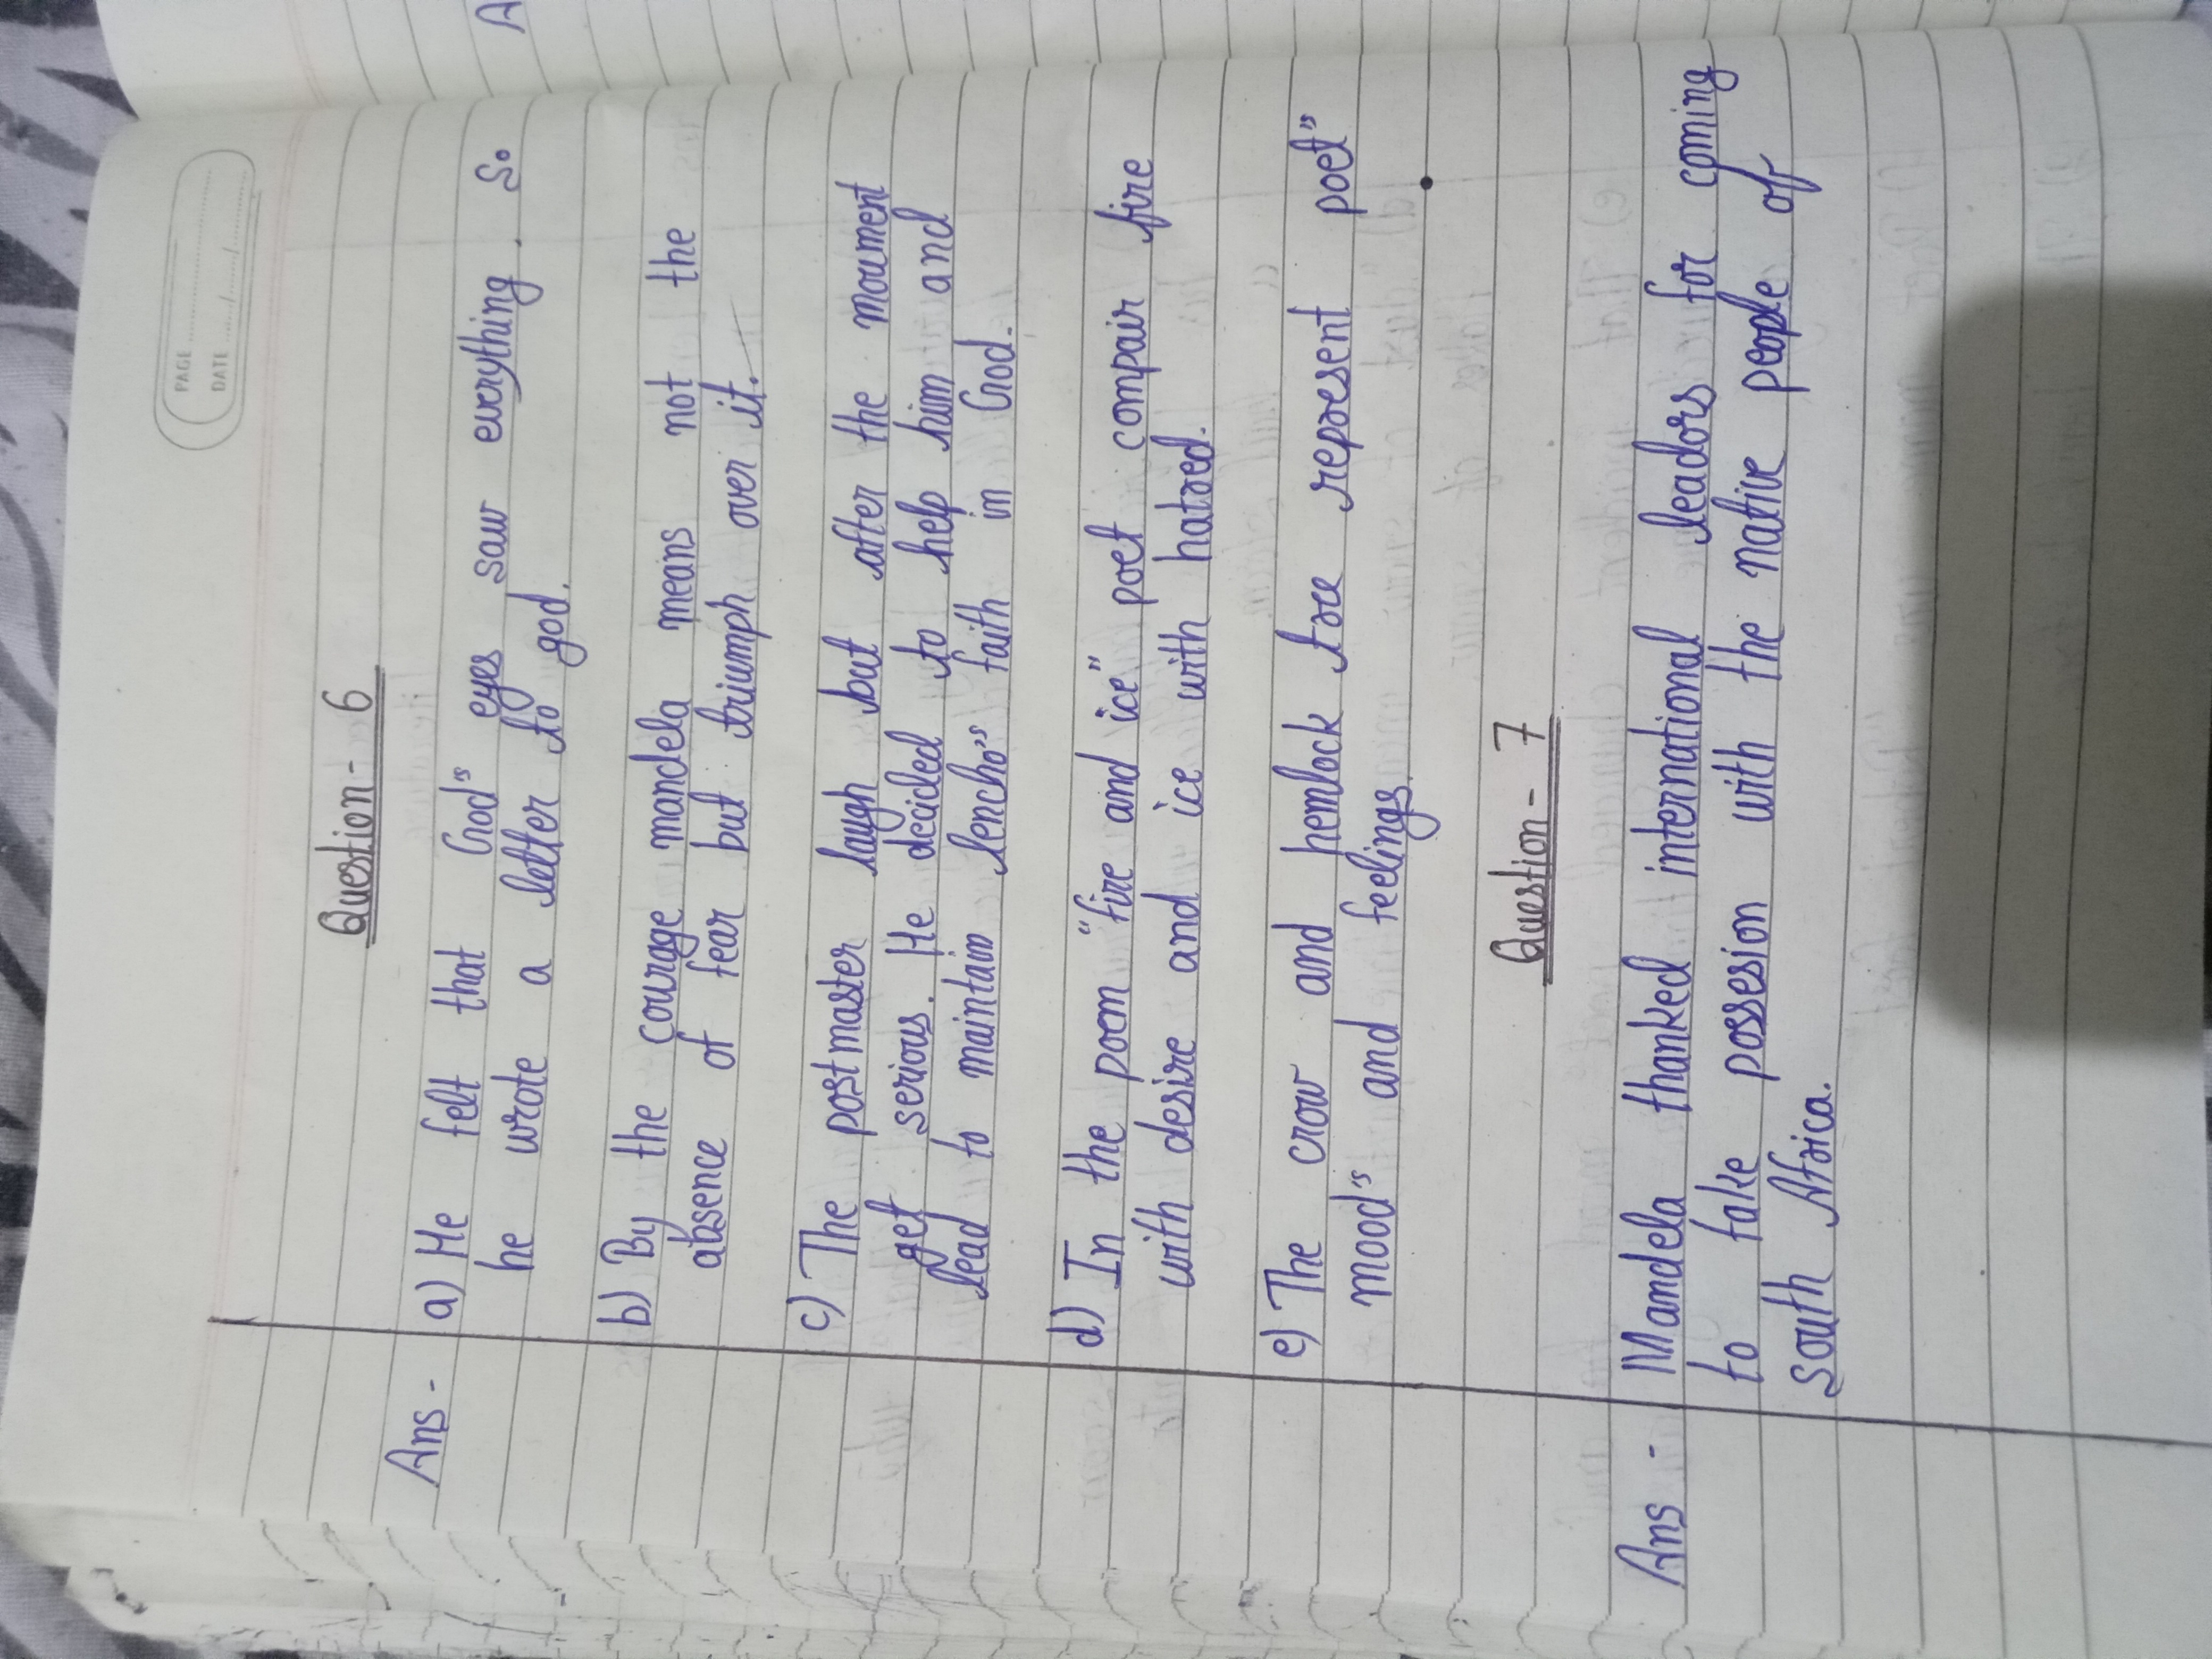 PAGE
DATE
Question - 6
Ans - a) He felt that God's eyes saw everything. So
he wrote a letter to god.
b) By the courage mandela means not the
absence of fear but triumph over it.
c) The postmaster laugh but after the moument
get serious. He decided to help him and
lead to maintain lencho's faith in God.
d) In the poem "fire and ice" poet compair fire
with desire and ice with hatred.
e) The crow and hemlock tree represent poet"s
mood's and feelings.
Question - 7
Ans - Mandela thanked international leadors for coming
to take possesion with the native people of
south Africa.
A